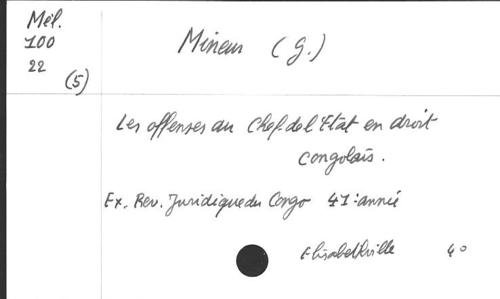 Mél.
100
22
(5)
Mineur (G.)
Les offenses au Chef de l'Etat en droit
congolais.
Ex. Rev. Juridique du Congo 41e année
Elisabethville 4o